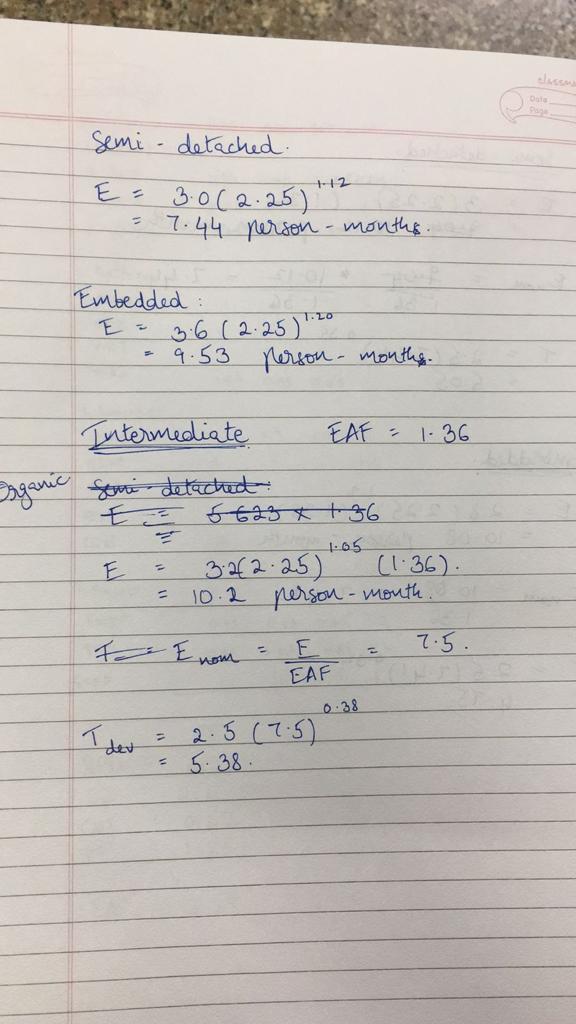 classm
Date
Page
Semi - detached.
E = 3.0 ( 2.25 )^1.12
= 7.44 person - months.
Embedded :
E = 3.6 ( 2.25 )^1.20
= 9.53 person - months.
Intermediate EAF = 1.36
Organic Semi - detached :
E = 5.623 x 1.36
=
E = 3.2(2.25)^1.05 (1.36).
= 10.2 person - month.
E nom = E / EAF = 7.5.
T dev = 2.5 (7.5)^0.38
= 5.38.